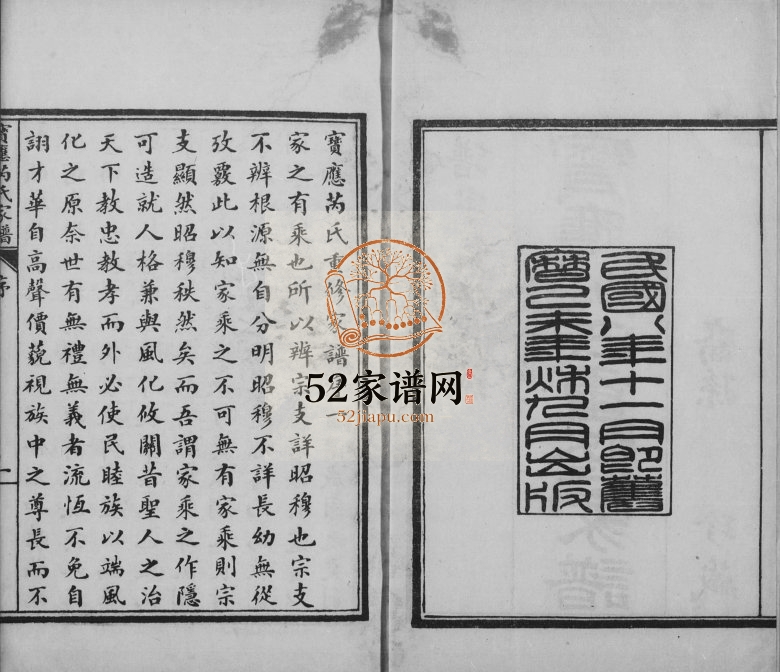 民國八年十一月即舊
曆己未年秋九月出版
寶應芮氏重修家譜
家之有乘也所以辨宗支詳昭穆也宗支
不辨根源無自分明昭穆不詳長幼無從
攷覈此以知家乘之不可無有家乘則宗
支顯然昭穆秩然矣而吾謂家乘之作隱
可造就人格兼與風化攸關昔聖人之治
天下教忠教孝而外必使民睦族以端風
化之原奈世有無禮無義者流恆不免自
詡才華自高聲價藐視族中之尊長而不
寶應芮氏家譜
序
52家谱网
52jiapu.com